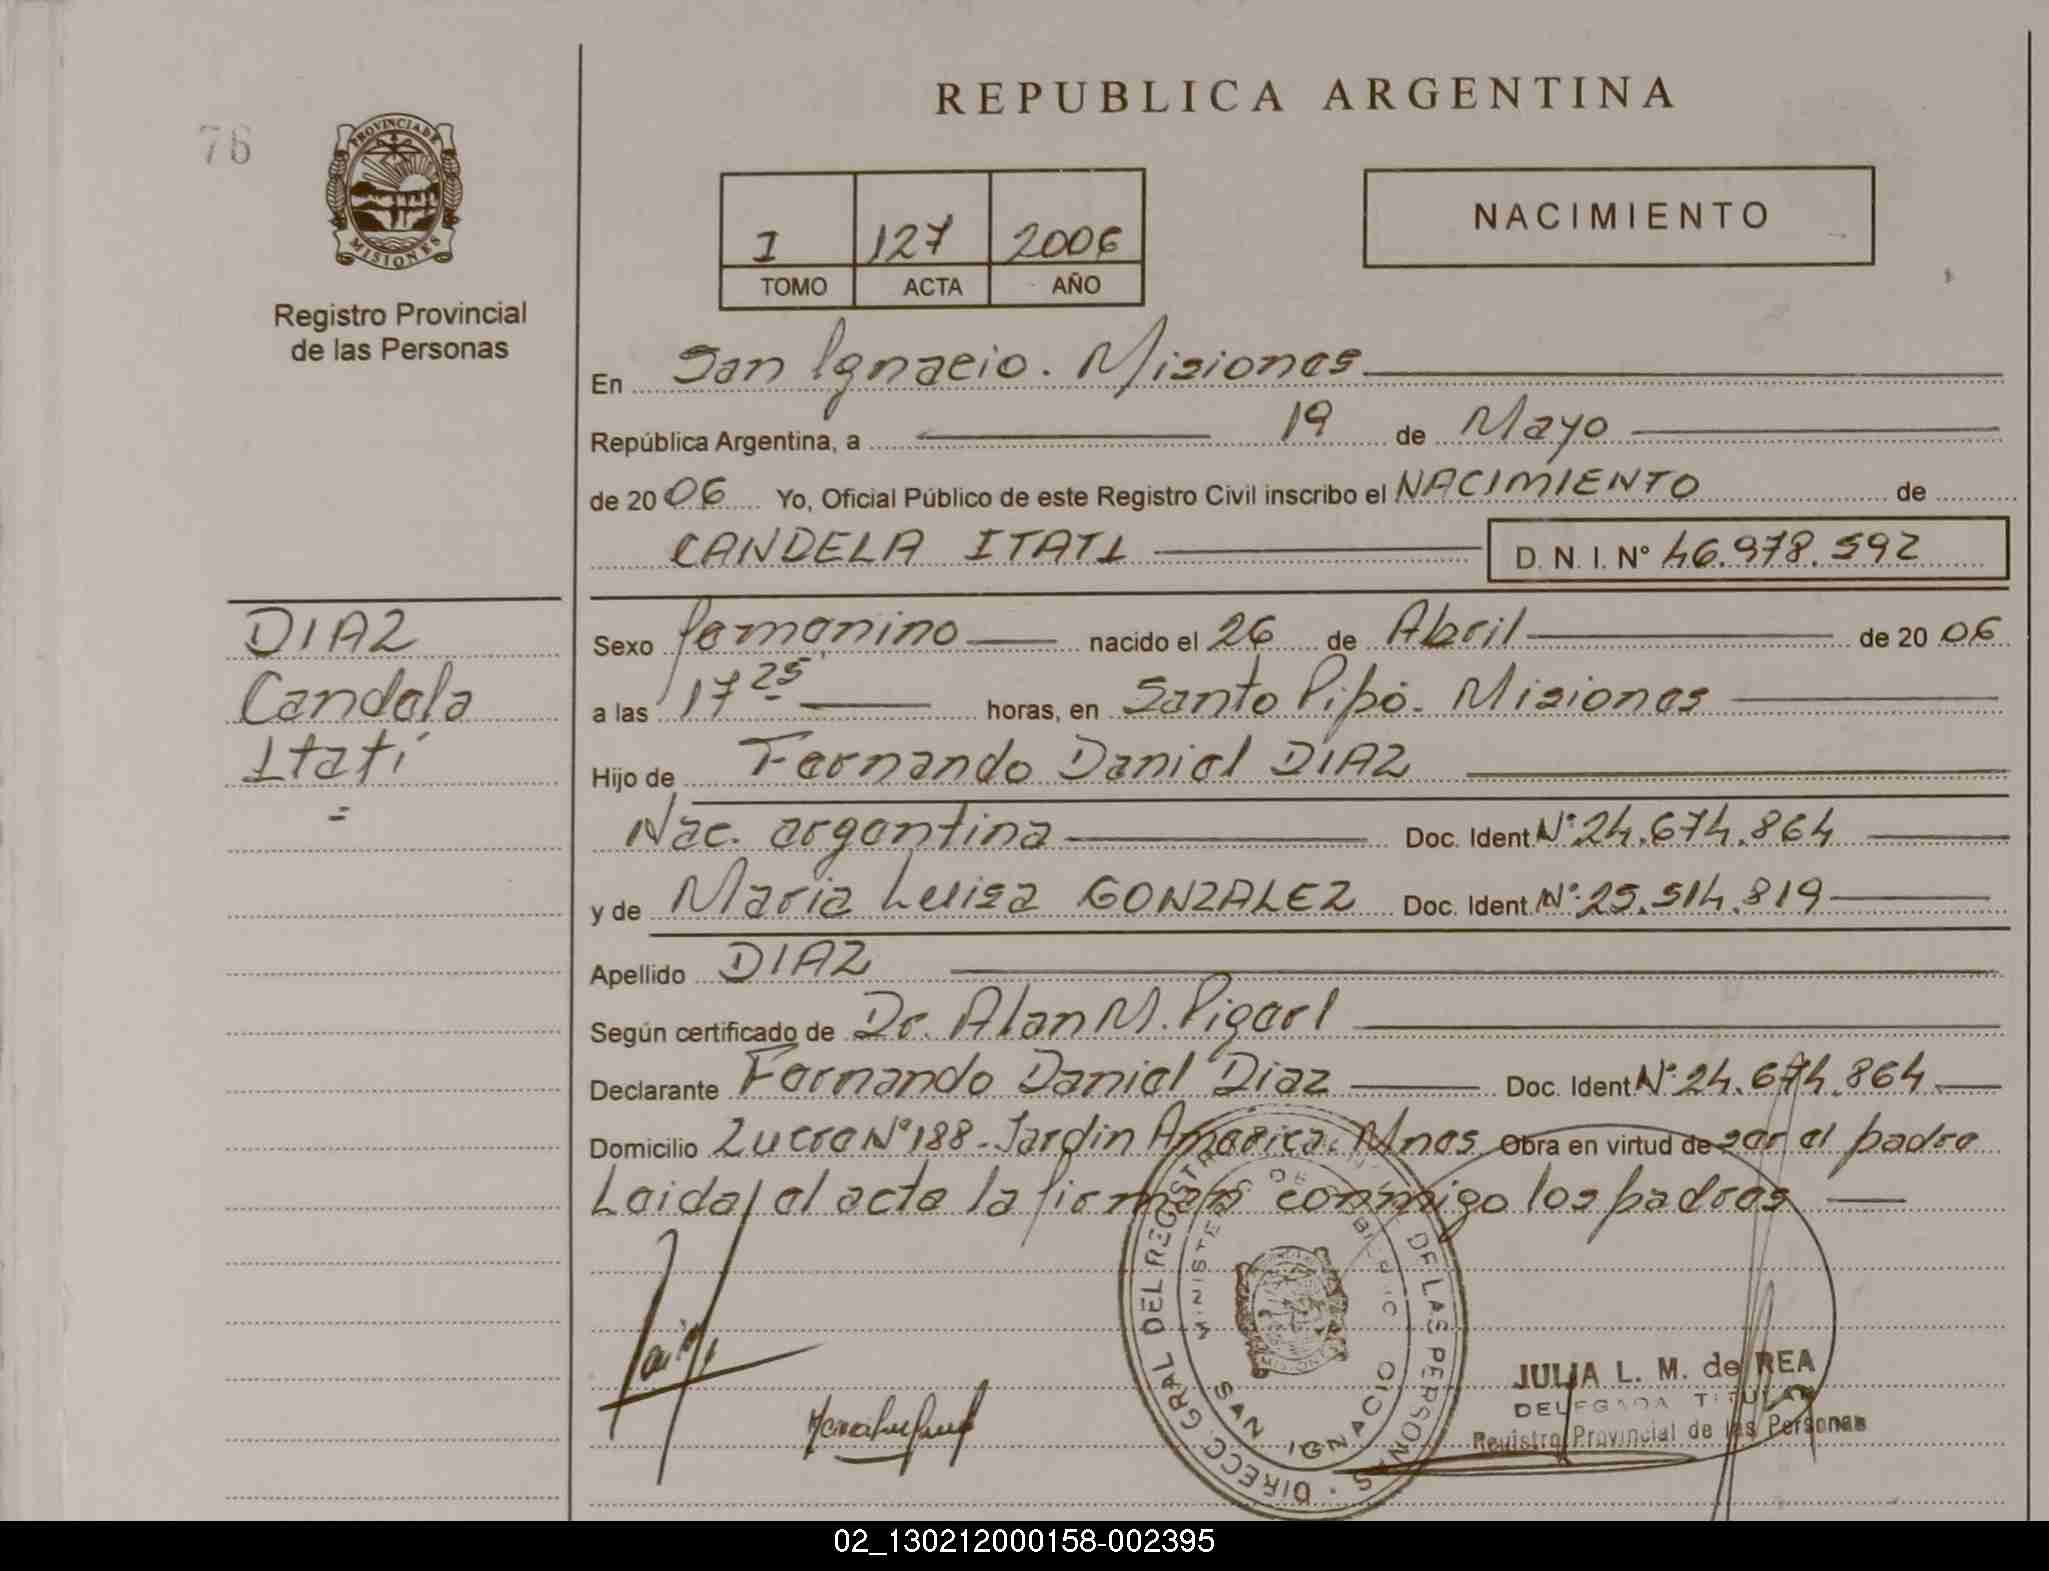 REPUBLICA ARGENTINA
76
PROVINCIA DE
MISIONES
Registro Provincial
de las Personas
I 127 2006
TOMO ACTA AÑO
NACIMIENTO
En San Ignacio. Misiones
República Argentina, a 19 de Mayo
de 20 06 Yo, Oficial Público de este Registro Civil inscribo el NACIMIENTO de
CANDELA ITATI D. N. I. N° 46.978.592
DIAZ
Candela
Itatí
=
Sexo femenino nacido el 26 de Abril de 20 06
a las 17 25 horas, en Santo Pipó. Misiones
Hijo de Fernando Daniel DIAZ
Nac. argentina Doc. Ident. N° 24.674.864
y de Maria Luisa GONZALEZ Doc. Ident. N° 25.514.819
Apellido DIAZ
Según certificado de Dr. Alan M.
Declarante Fernando Daniel Diaz Doc. Ident. N° 24.674.864
Domicilio N° 188 - Jardin America. Mnes Obra en virtud de ser el padre
Leida el acta la firman conmigo los padres
DIRECC. GRAL DEL REGISTRO DE LAS PERSONAS
MINISTERIO DE
MISIONES
SAN IGNACIO
JULIA L. M. de REA
DELEGADA TITULAR
Registro Provincial de las Personas
02_130212000158-002395